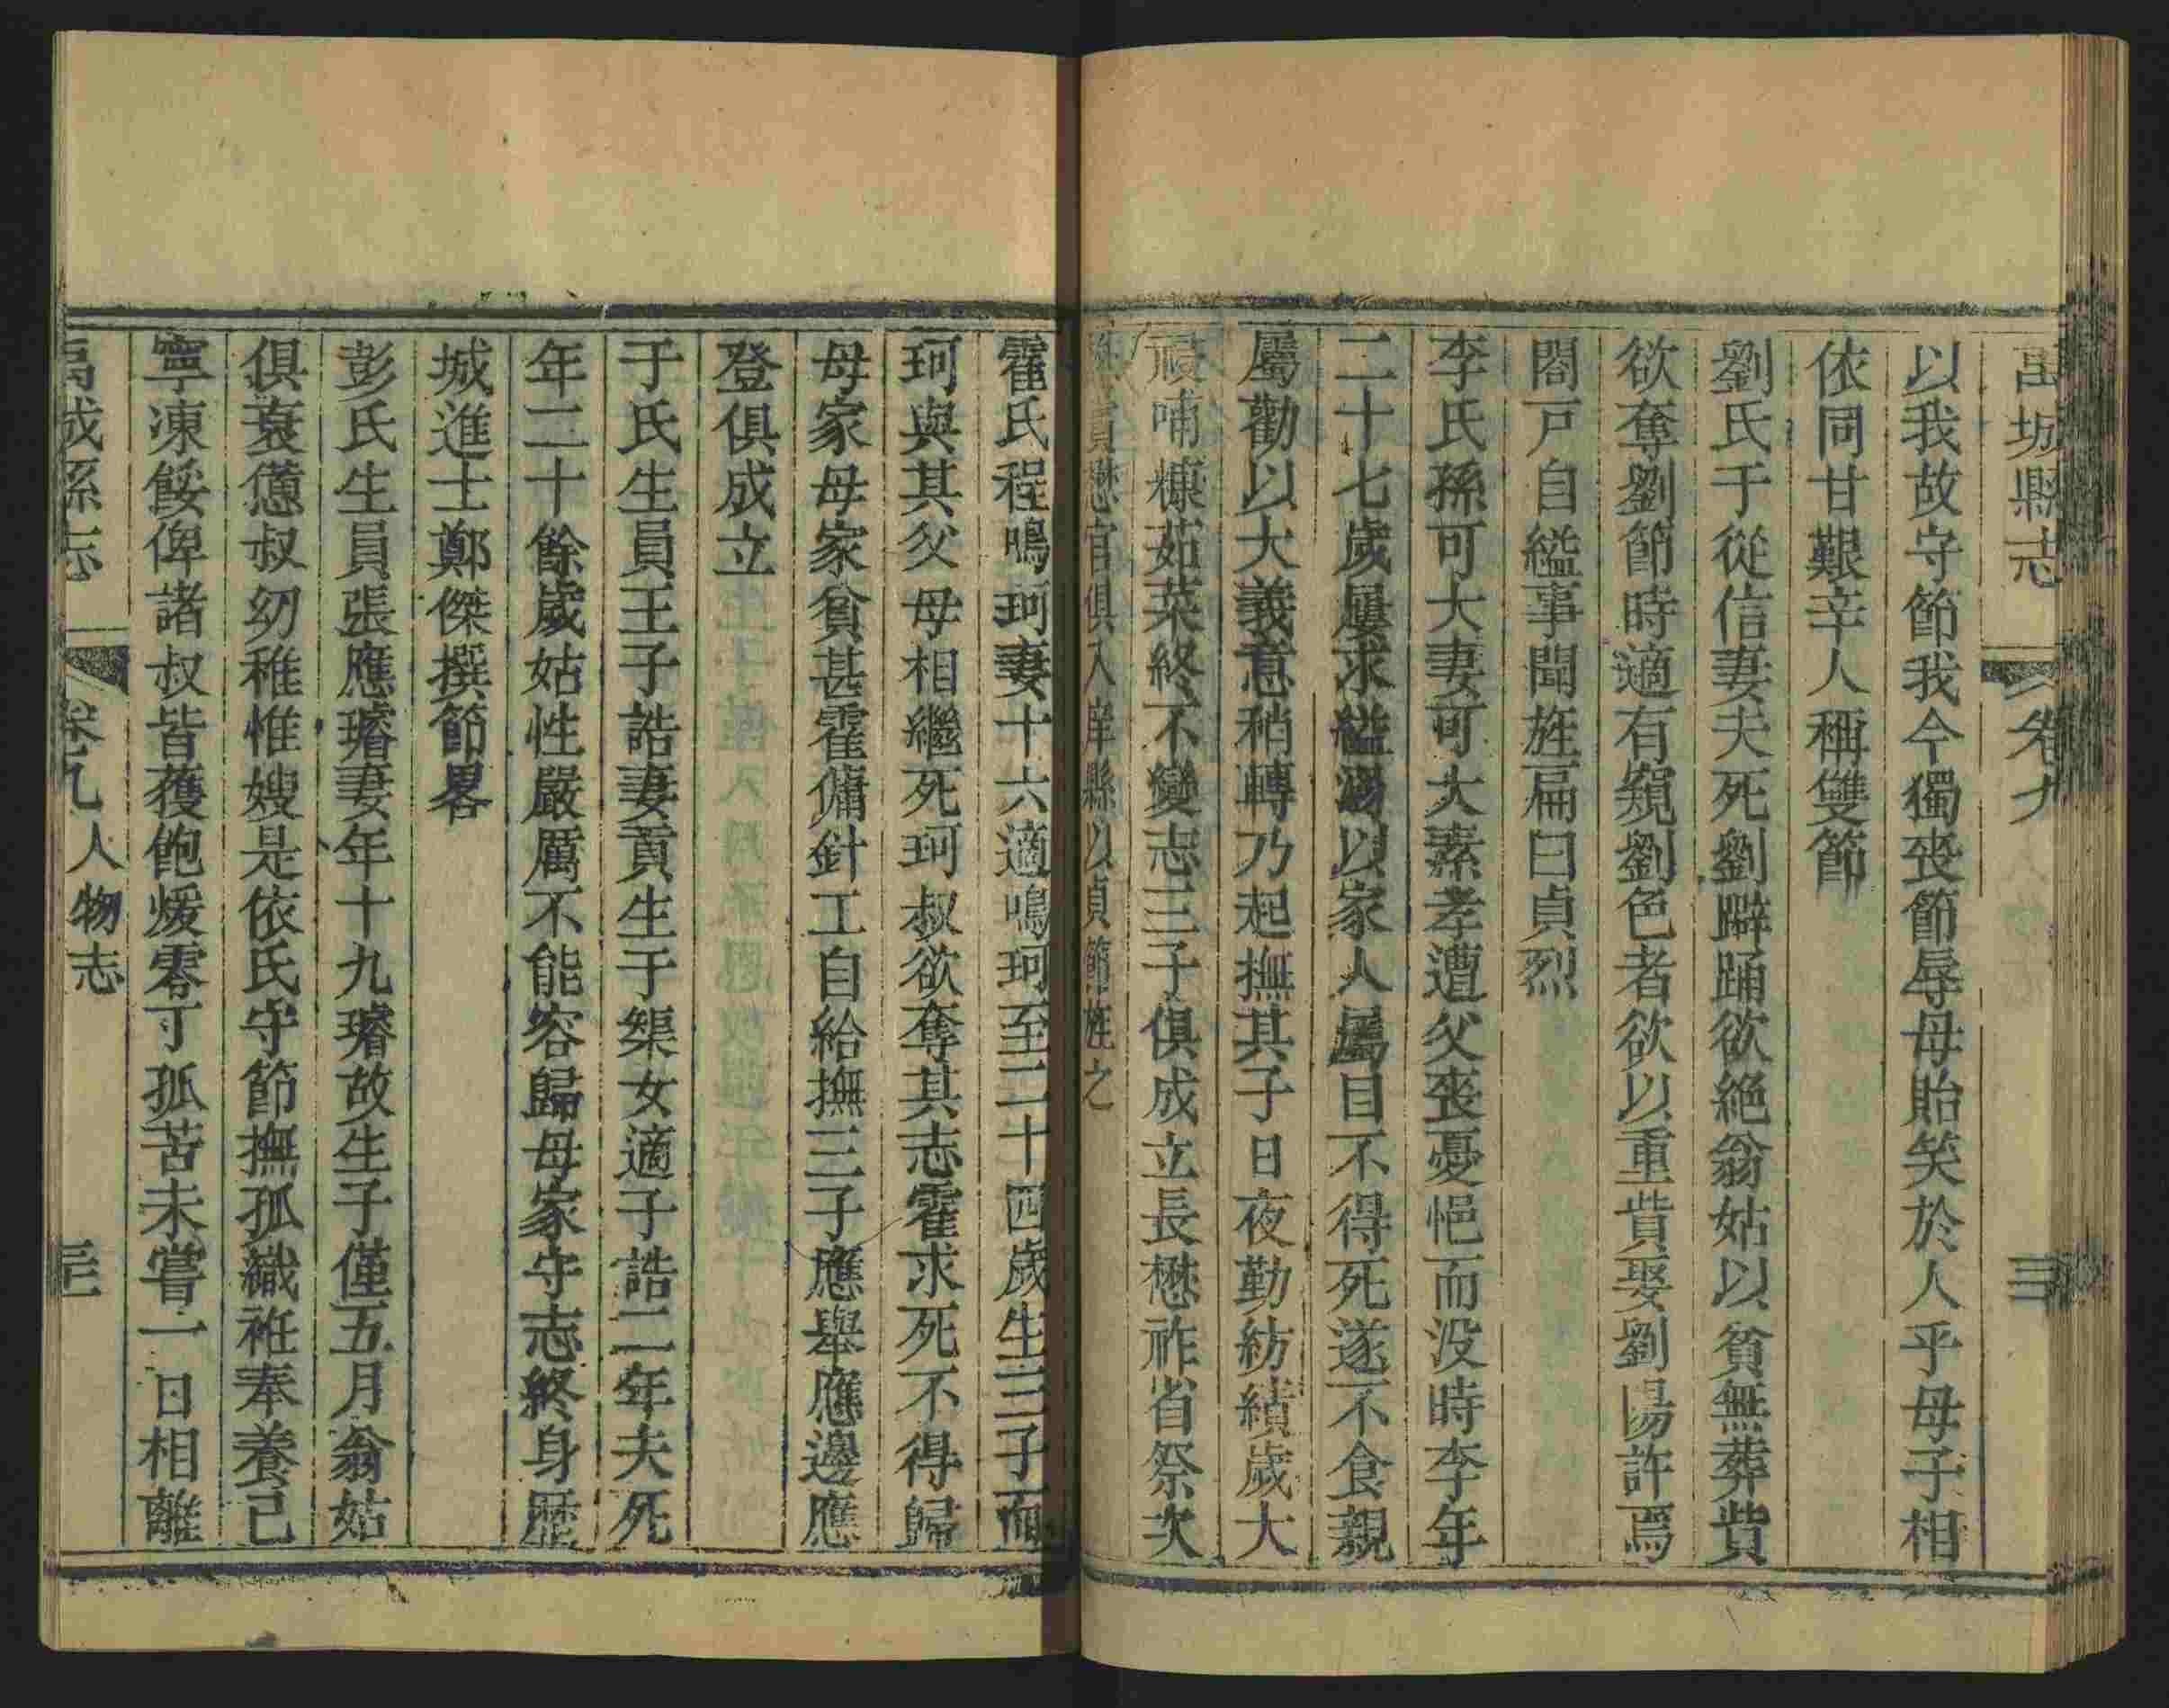 城縣志 卷九 三
以我故守節我今獨喪節辱母貽笑於人乎母子相
依同甘艱辛人稱雙節
劉氏于從信妻夫死劉躃踊欲絕翁姑以貧無葬貲
欲奪劉節時適有窺劉色者欲以重貲娶劉陽許焉
閤戸自縊事聞旌扁曰貞烈
李氏孫可大妻可大素孝遭父喪憂悒而没時李年
二十七歲屢求縊溺以家人屬目不得死遂不食親
屬勸以大義意稍轉乃起撫其子日夜勤紡績歲大
祲哺糠茹菜終不變志三子俱成立長懋祚省祭次
懋官俱入庠縣以貞節旌之
霍氏程鳴珂妻十六適鳴珂至二十四歲生三子而
珂與其父母相繼死珂叔欲奪其志霍求死不得歸
母家母家貧甚霍傭針工自給撫三子應舉應邊應
登俱成立
于氏生員王子誥妻貢生于榘女適子誥二年夫死
年二十餘歲姑性嚴厲不能容歸母家守志終身歷
城進士鄭傑撰節畧
彭氏生員張應璿妻年十九璿故生子僅五月翁姑
俱衰憊叔幼稚惟嫂是依氏守節撫孤織袵奉養已
寧凍餒俾諸叔皆獲飽煖零丁孤苦未嘗一日相離
城縣志 卷九 人物志